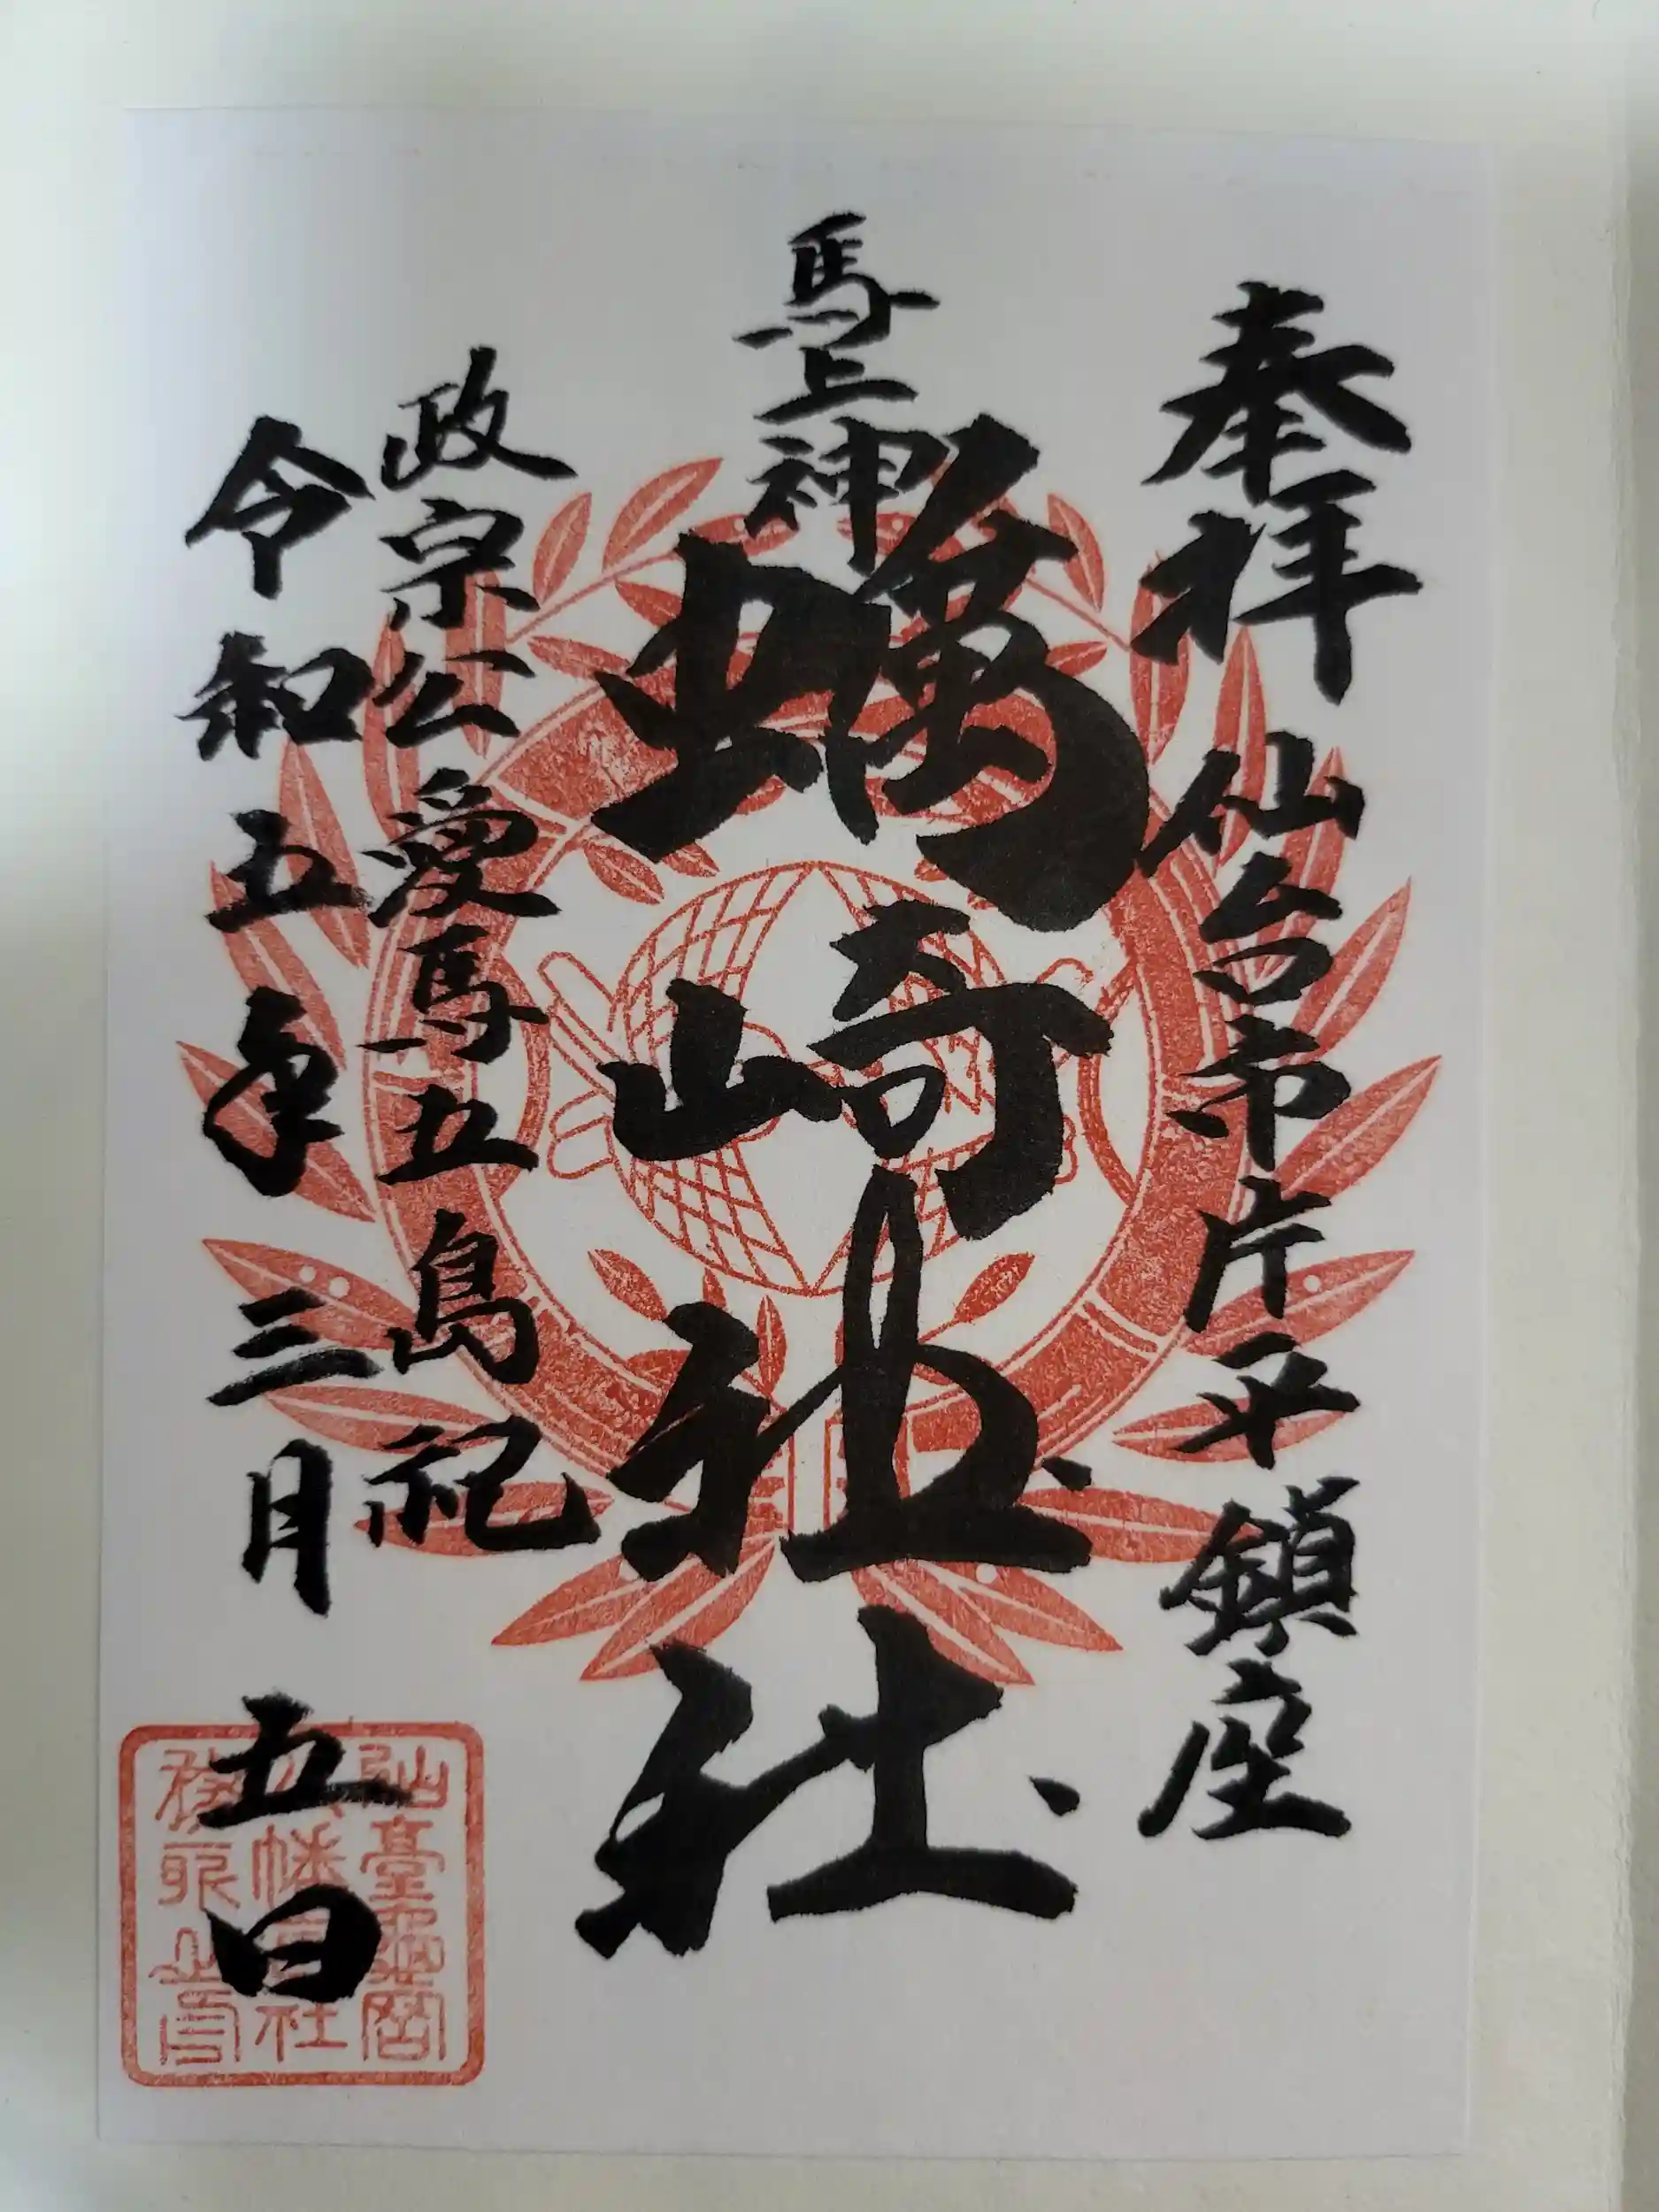 奉拝 仙台市片平鎮座
馬上神
蠣崎神社
政宗公愛馬五島祀
令和五年三月五日
仙臺龜岡
八幡神社
務所之印